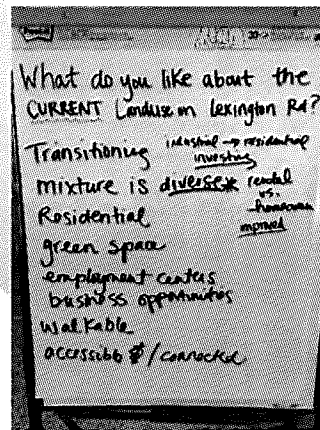 What do you like about the
CURRENT Landuse on Lexington Rd?
Transitioning industrial → residential
investing
mixture is diverse* rental
vs.
Residential homeowner
improved
green space
employment centers
business opportunities
walkable
accessible /connected